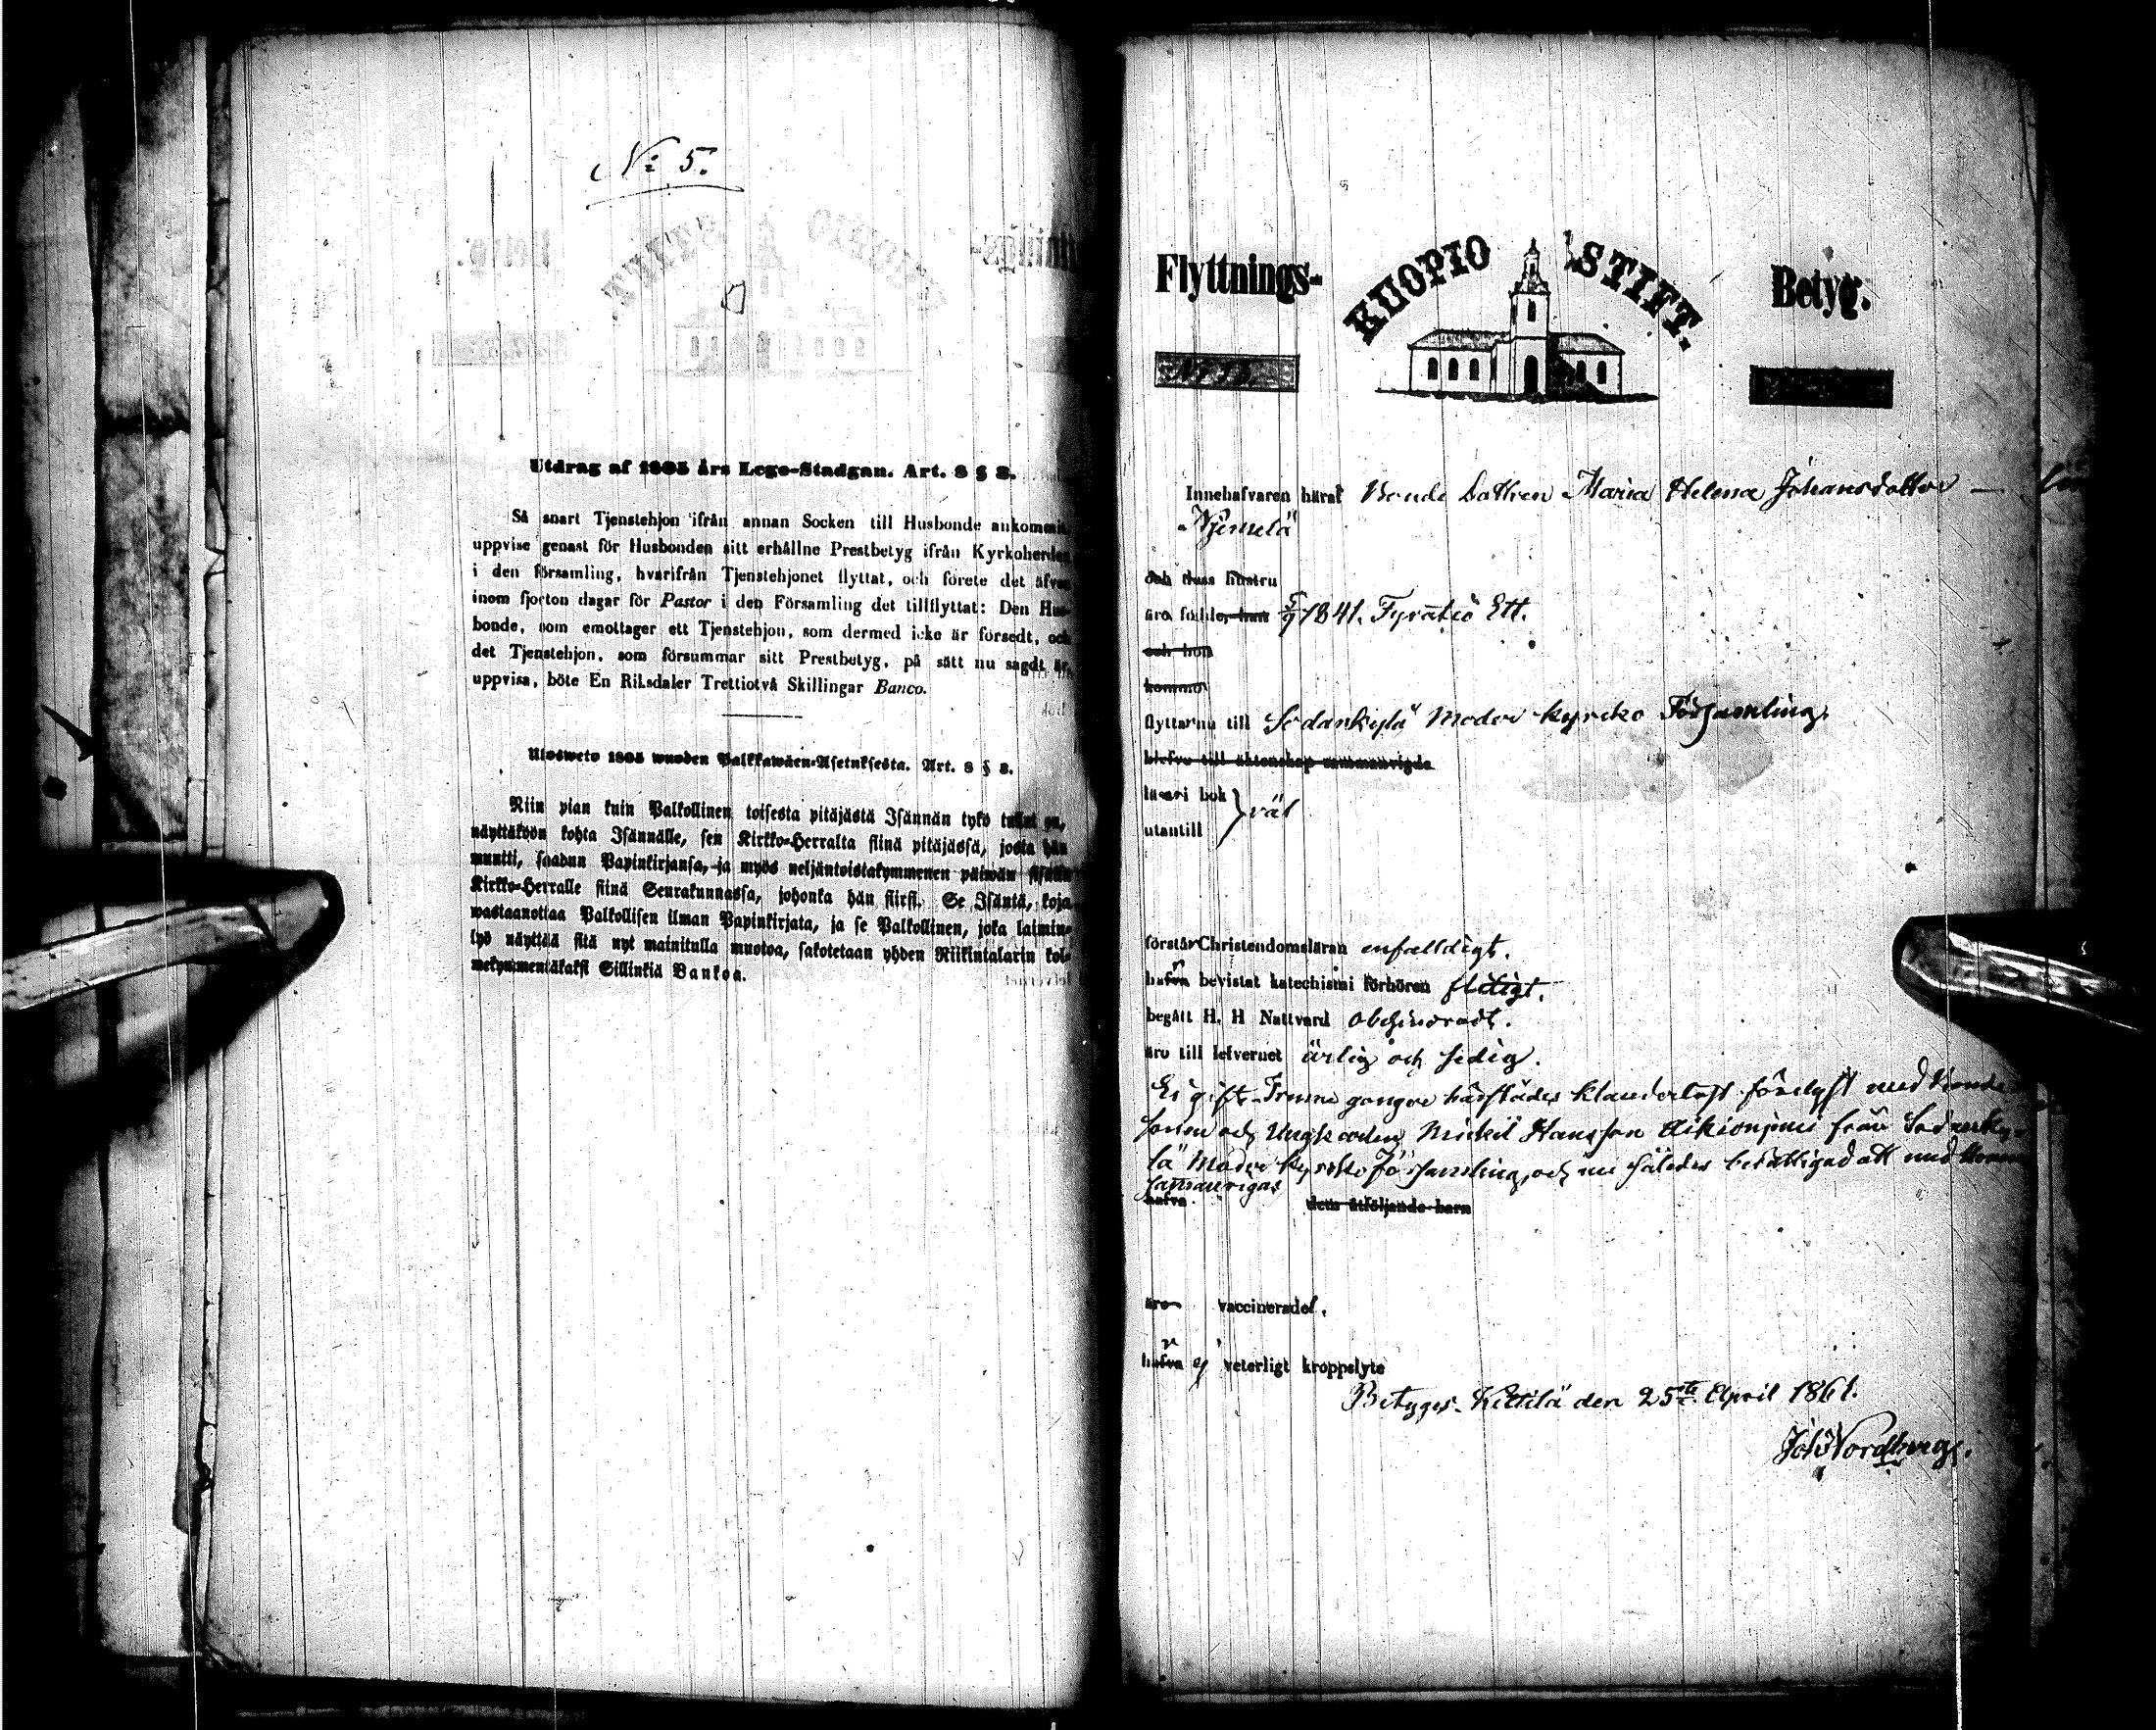 N:o 5.
Utdrag af 1805 års Lego-Stadgan. Art. 8 § 8.
Så snart Tjenstehjon ifrån annan Socken till Husbonde ankommit,
uppvise genast för Husbonden sitt erhållne Prestbetyg ifrån Kyrkoherden
i den församling, hvarifrån Tjenstehjonet flyttat, och förete det äfven
inom fjorton dagar för Pastor i den Församling det tillflyttat: Den Hus-
bonde, som emottager ett Tjenstehjon, som dermed icke är försedt, och
det Tjenstehjon, som försummar sitt Prestbetyg, på sätt nu sagdt är,
uppvisa, böte En Riksdaler Trettiotvå Skillingar Banco.
Ulosweto 1805 wuoden Palkkawäen-Asetuksesta. Art. 8 § 8.
Niin pian kuin Palkollinen toisesta pitäjästä Isännän tykö tullut on,
näyttäköön kohta Isännälle, sen Kirkko-Herralta siinä pitäjässä, josta hän
muutti, saadun Papinkirjansa, ja myös neljäntoistakymmenen päiwän sisällä
Kirkko-Herralle siinä Seurakunnassa, johonka hän siirsi. Se Isäntä, koja
wastaanottaa Palkollisen ilman Papinkirjata, ja se Palkollinen, joka laimin-
lyö näyttää sitä nyt mainitulla muotoa, sakotetaan yhden Riikintalarin kol-
mekymmentäkaksi Sillinkiä Bankoa.
Flyttnings- KUOPIO STIFT. Betyg.
Innehafvaren häraf Bonde Dottren Maria Helena Johansdotter
Njemelä
och dess hustru
äro födde, han 5/9 1841. Fyratio Ett.
och hon
komma
flyttar nu till Sodankylä Moder kyrcko Församling.
blefvo till äktenskap sammanvigde
läser i bok } väl
utantill
förstår Christendomsläran enfalldigt.
hafva bevistat katechismi förhören flitigt.
begått H. H Nattvard obehindradt.
äro till lefvernet ärlig och sedig.
Ei gift. Trenne gånger härstädes klanderlöst förelyst med Bonde
sonen och Ungkarlen Mickel Hansson Aikionjemi från Sodanky-
lä Moder kyrcko Församling, och nu således berättigad att med honom
sammanvigas
hafva dem åtföljande barn
äro vaccinerade.
hafva ej veterligt kroppslyte
Betyges. Kittilä den 25te April 1861.
Joh Nordberg.